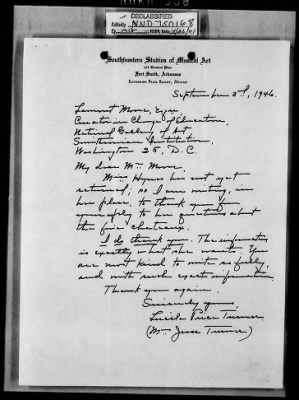 DECLASSIFIED
Southwestern Studies of Musical Art
Fort Smith, Arkansas
September 3rd, 1946.
Lamont Moore, Esq.
Curator in Charge of Education,
National Gallery of Art
Smithsonian Institution,
Washington 25, D.C.
My dear Mr. Moore:
Miss has not yet
returned, so I am writing, in
her place, to thank you for
your reply to her questions about
the five chateaux.
I do thank you. The information
is exactly what she wants. You
are most kind to write so fully,
and with such exact information.
Thank you again.
Sincerely yours,
Lucile Price Turner
(Mrs. Jesse Turner)